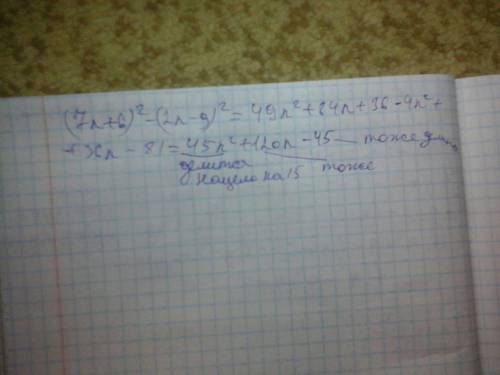 (7n+6)²-(2n-9)² = 49n²+84n+36-4n²+
+36n-81=45n²+120n-45 — тоже
делится
нацело на 15 тоже